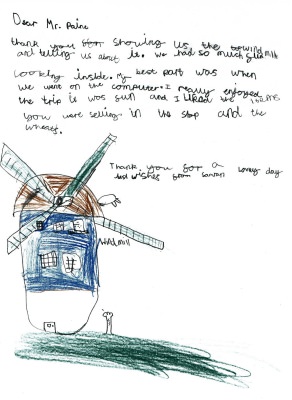 Dear Mr. Paine
thank you for showing us the windmill
and telling us about it. we had so much fun
Looking inside. my best part was when
we went on the computer. I really enjoyed
the trip it was fun and I liked the items
you were selling in the shop and the
wheat.
Thank you for a lovely day
best wishes from
windmill